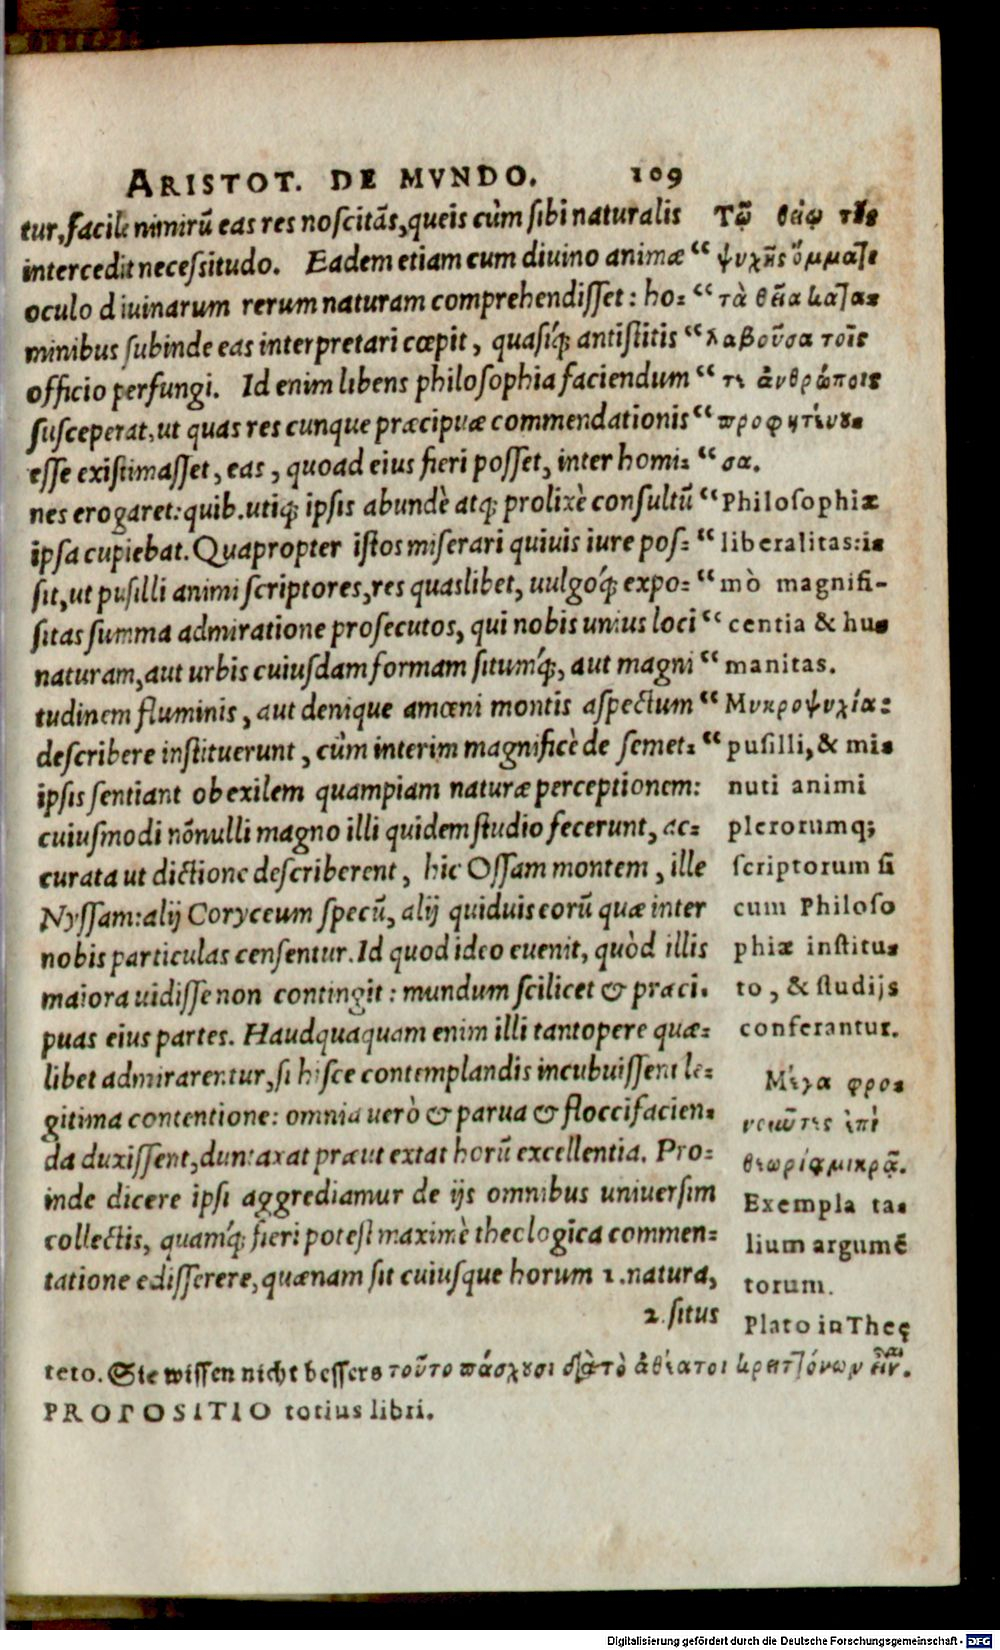 ARISTOT. DE MVNDO. 109
tur, facile nimirũ eas res noscitãs, queis cùm sibi naturalis
intercedit necessitudo. Eadem etiam cum diuino animæ “
oculo diuinarum rerum naturam comprehendisset: ho= “
minibus subinde eas interpretari cœpit, quasíq; antistitis “
officio perfungi. Id enim libens philosophia faciendum “
susceperat, ut quas res cunque præcipuæ commendationis “
esse existimasset, eas, quoad eius fieri posset, inter homi= “
nes erogaret: quib. utiq; ipsis abundè atq; prolixè consultũ “
ipsa cupiebat. Quapropter istos miserari quiuis iure pos= “
sit, ut pusilli animi scriptores, res quaslibet, uulgóq; expo= “
sitas summa admiratione prosecutos, qui nobis unius loci “
naturam, aut urbis cuiusdam formam situmq́;, aut magni “
tudinem fluminis, aut denique amœni montis aspectum “
describere instituerunt, cùm interim magnificè de semet= “
ipsis sentiant ob exilem quampiam naturæ perceptionem:
cuiusmodi nõnulli magno illi quidem studio fecerunt, ac=
curata ut dictione describerent, hic Ossam montem, ille
Nyssam: alij Coryceum specũ, alij quiduis eorũ quæ inter
nobis particulas censentur. Id quod ideo euenit, quòd illis
maiora uidisse non contingit: mundum scilicet & præci=
puas eius partes. Haudquaquam enim illi tantopere quæ=
libet admirarentur, si hisce contemplandis incubuissent le=
gitima contentione: omnia uerò & parua & floccifacien=
da duxissent, duntaxat præut extat horũ excellentia. Pro=
inde dicere ipsi aggrediamur de ijs omnibus uniuersim
collectis, quamq́; fieri potest maximè theologica commen=
tatione edisserere, quænam sit cuiusque horum 1. natura,
2. situs
Τῷ θείῳ τῆς
ψυχῆς ὄμματι
τὰ θεῖα κατα=
λαβοῦσα τοῖς
τε ἀνθρώποις
προφητεύου=
σα.
Philosophiæ
liberalitas: i=
mò magnifi-
centia & hu=
manitas.
Μικροψυχία:
pusilli, & mi=
nuti animi
plerorumq;
scriptorum si
cum Philoso
phiæ institu=
to, & studijs
conferantur.
Μέγα φρο=
νοῦντες ἐπὶ
θεωρίᾳ μικρᾷ.
Exempla ta=
lium argumẽ
torum.
Plato in Theę
teto. Sie wissen nicht bessers τοῦτο πάσχουσι διὰ τὸ ἀθέατοι κρειττόνων εἶναι.
PROPOSITIO totius libri.
Digitalisierung gefördert durch die Deutsche Forschungsgemeinschaft - DFG